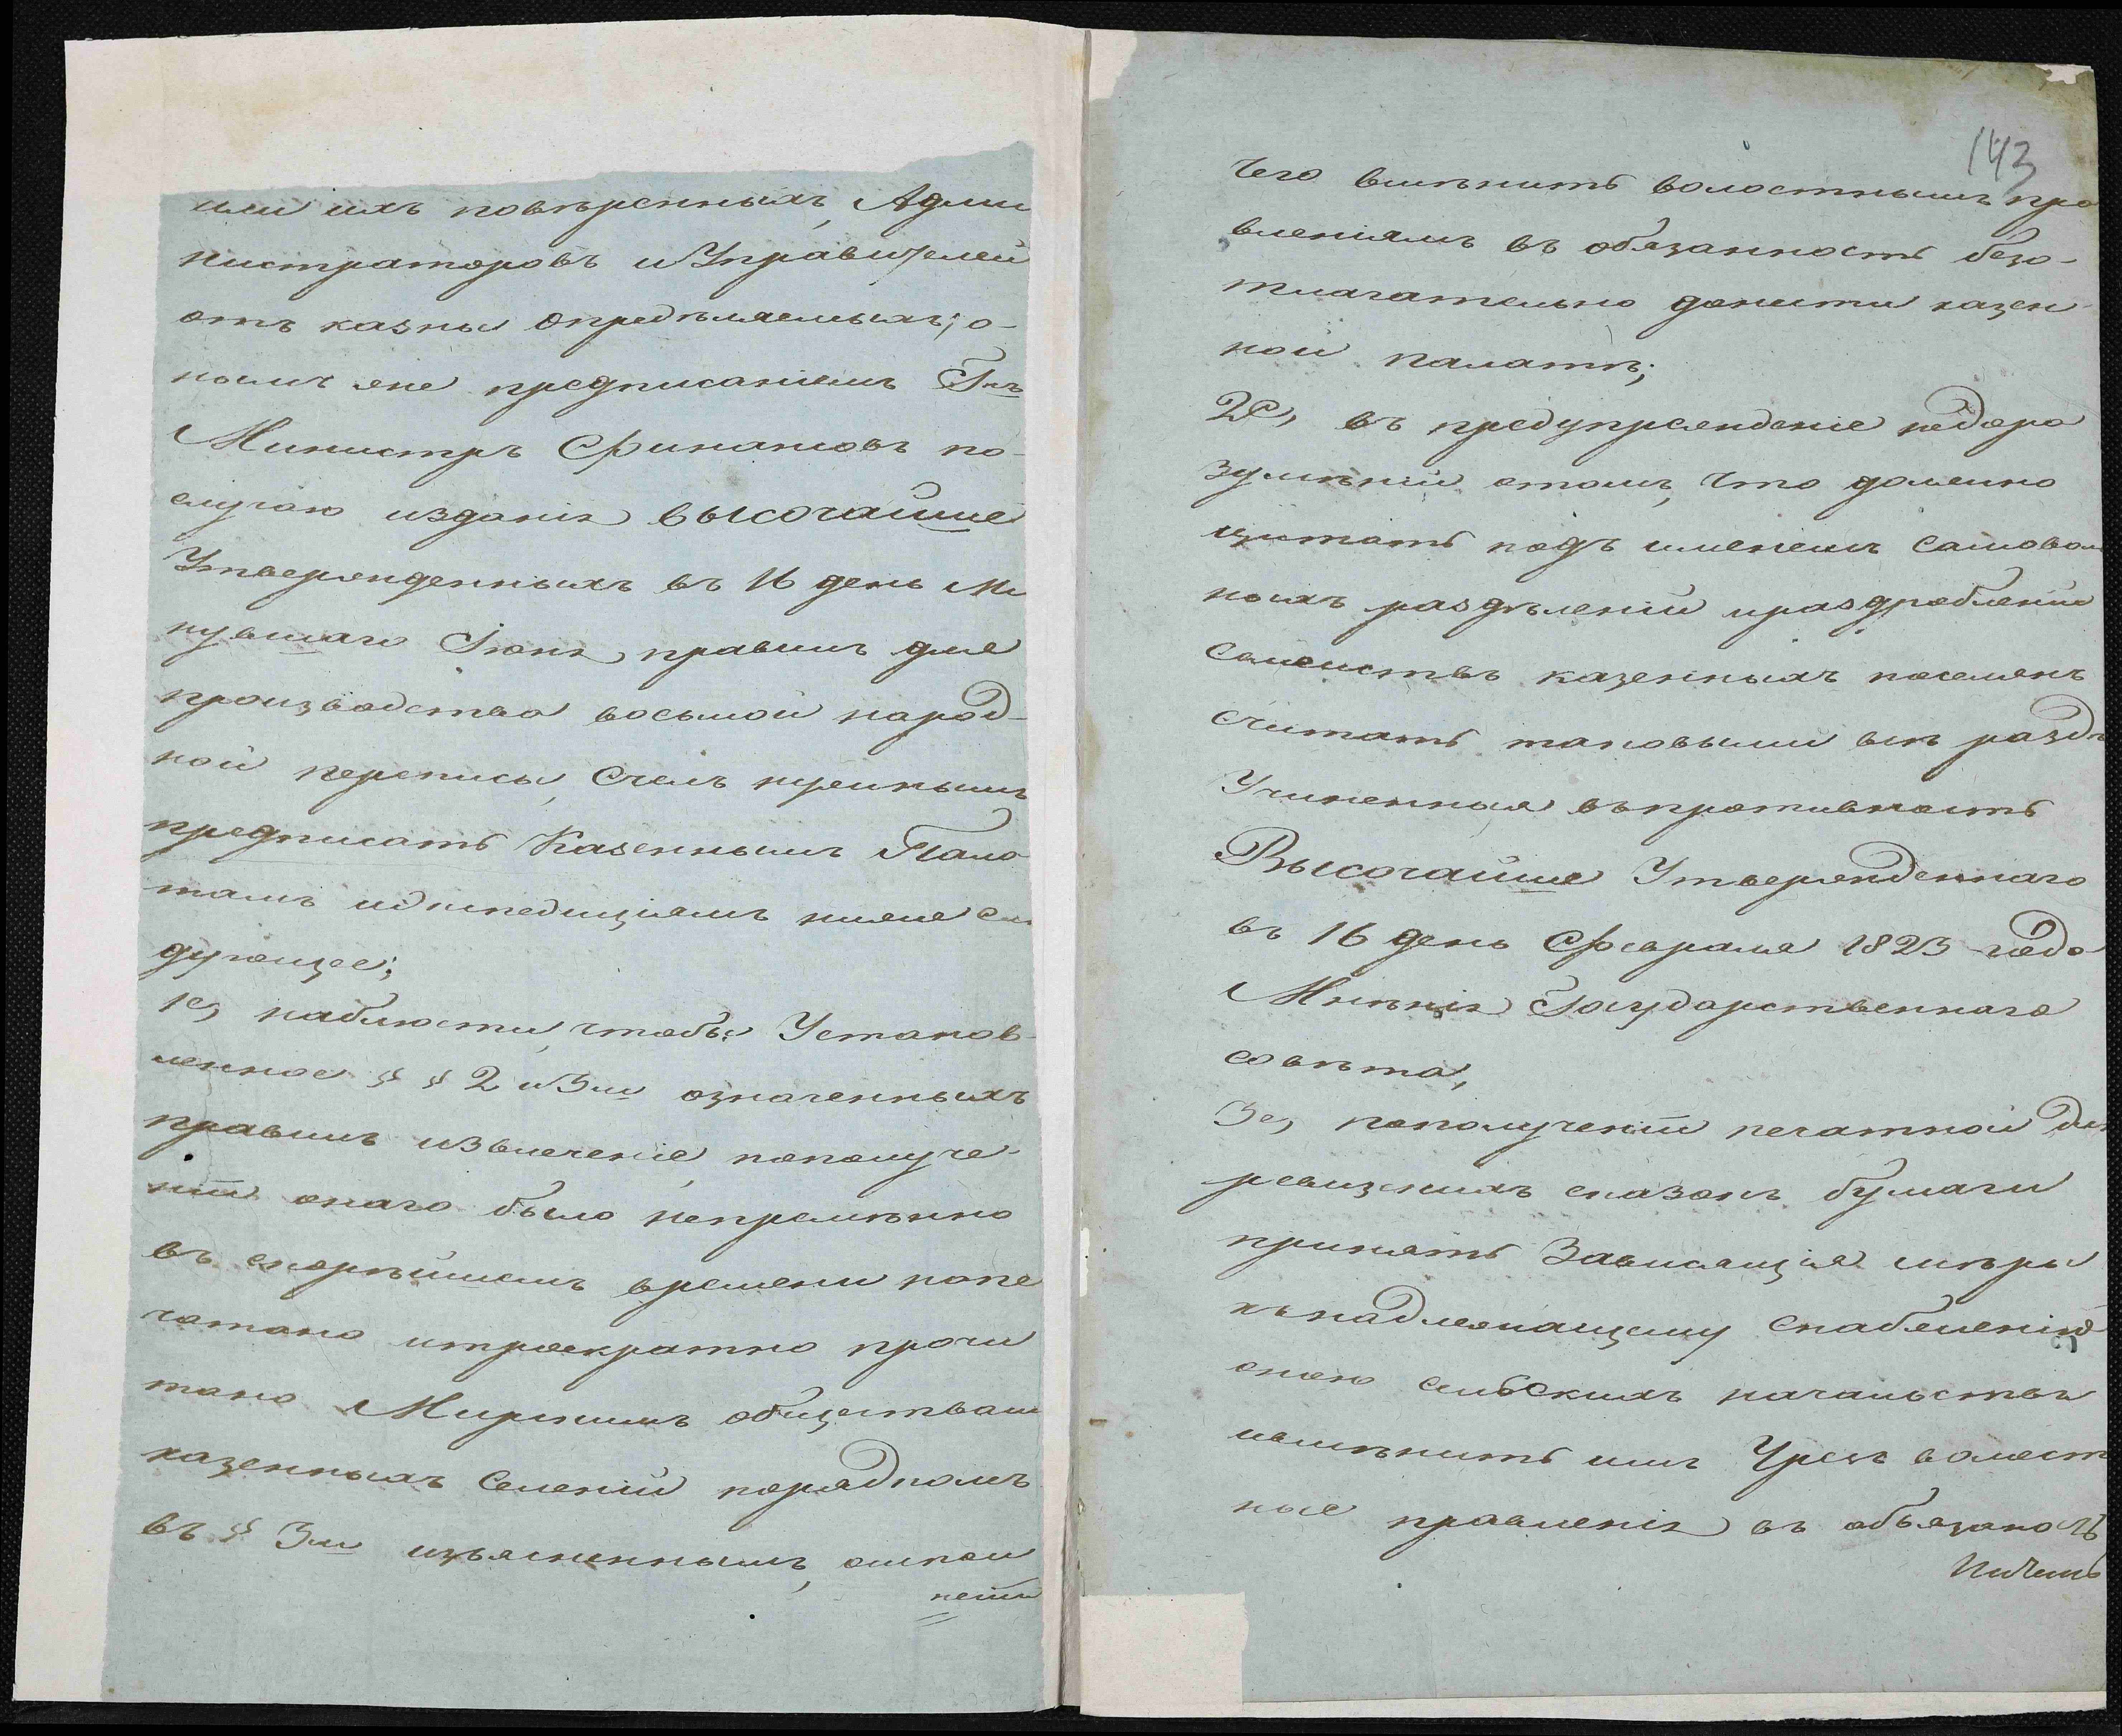 или ихъ повѣренныхъ, Адми
нистраторовъ и Управителей
отъ казны опредѣляемыхъ; о-
нымъ же предписаніемъ Гнъ
Министръ Финансовъ по-
случаю изданія ВЫСОЧАЙШЕ
Утвержденныхъ въ 16 день Ми
нувшаго Іюня правилъ для
производства восьмой народ-
ной переписи, Счелъ нужнымъ
предписать Казеннымъ Пала
тамъ и Экспедиціямъ ниже слѣ
дующее;
1е, наблюсти, чтобы Установ-
ленное § § 2 и 3м означенныхъ
правилъ извлечение, пополуче-
ніи онаго было непремѣнно
въ скорѣйшемъ времени напе
чатано итроекратно прочи
тано Мирскимъ обществамъ
казенныхъ Селеній порядкомъ
въ § 3м изъясненнымъ,
143
Чего вмѣнить волостнымъ пра
вленіямъ въ обязанность безо-
тлагательно донести казен-
ной палатѣ;
2е, въ предупрежденіе недора
зумѣній отомъ, что должно
щитать подъ именемъ самоволь
ныхъ раздѣленій ираздробленій
Семействъ казенныхъ поселянъ
Считать таковыми всѣ раздѣ
Учиненныя въпротивность
Высочайше Утвержденнаго
въ 16 день Февраля 1823 года
Мнѣнія Государственнаго
совѣта,
3е, пополученіи печатной для
ревизскихъ сказокъ бумаги
принять Зависящія мѣры
къ надлежащему Снабженію
оною сельскихъ начальствъ
ивмѣнить имъ Чрезъ волост
ные правленія въ обязаность